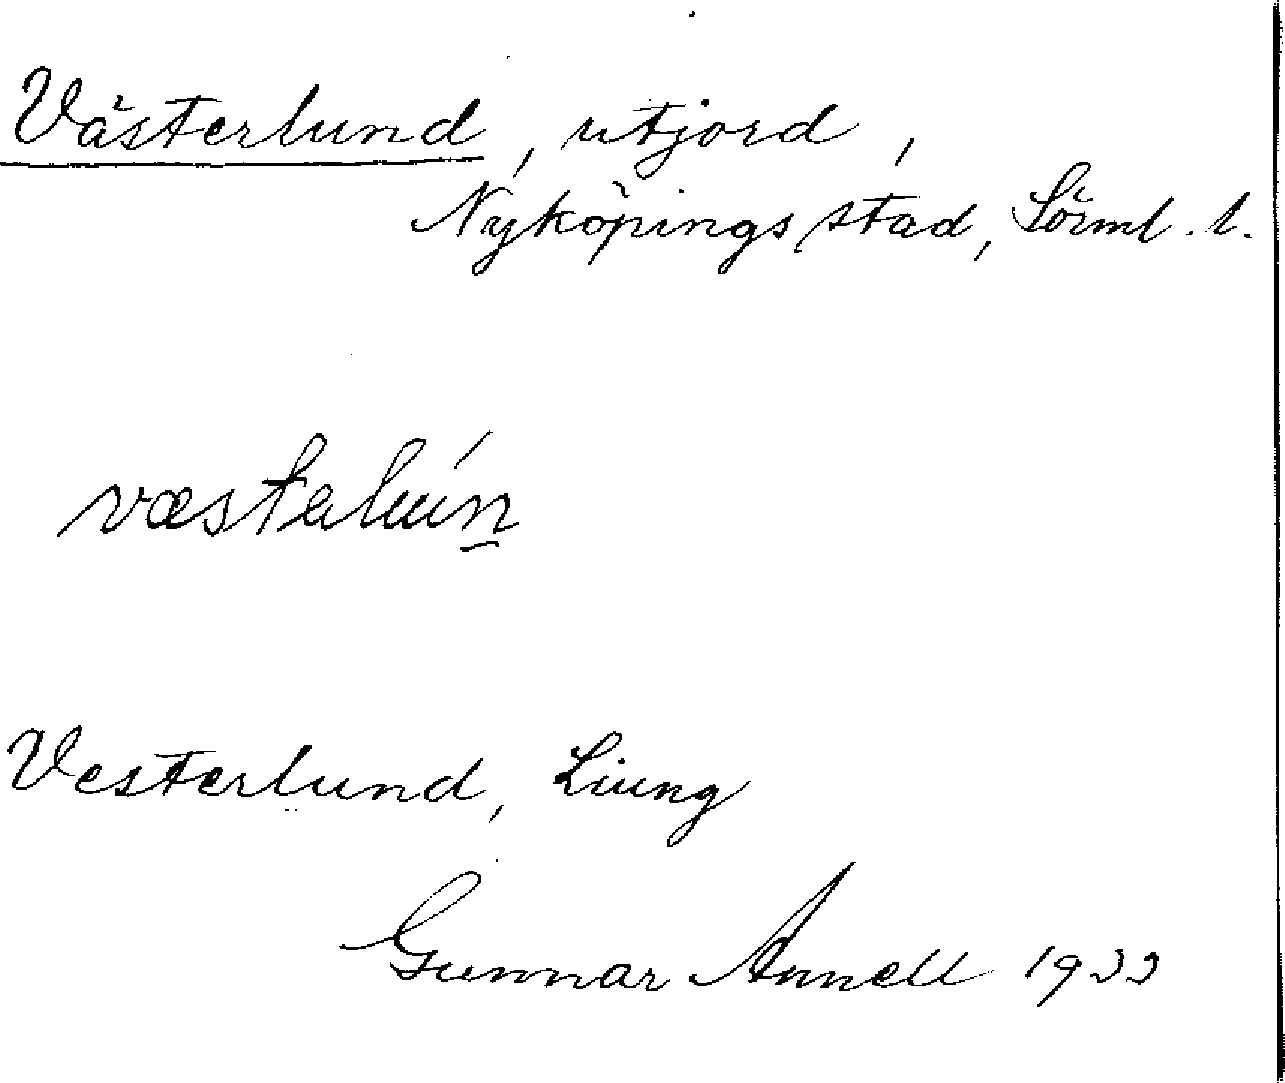 Västerlund, utjord,
Nyköpings stad, Sörml. l.
væstalún
Vesterlund, Liung
Gunnar Annell 1933